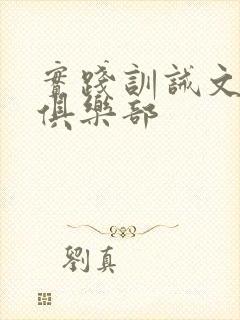 實踐訓誡文
俱樂部
劉真